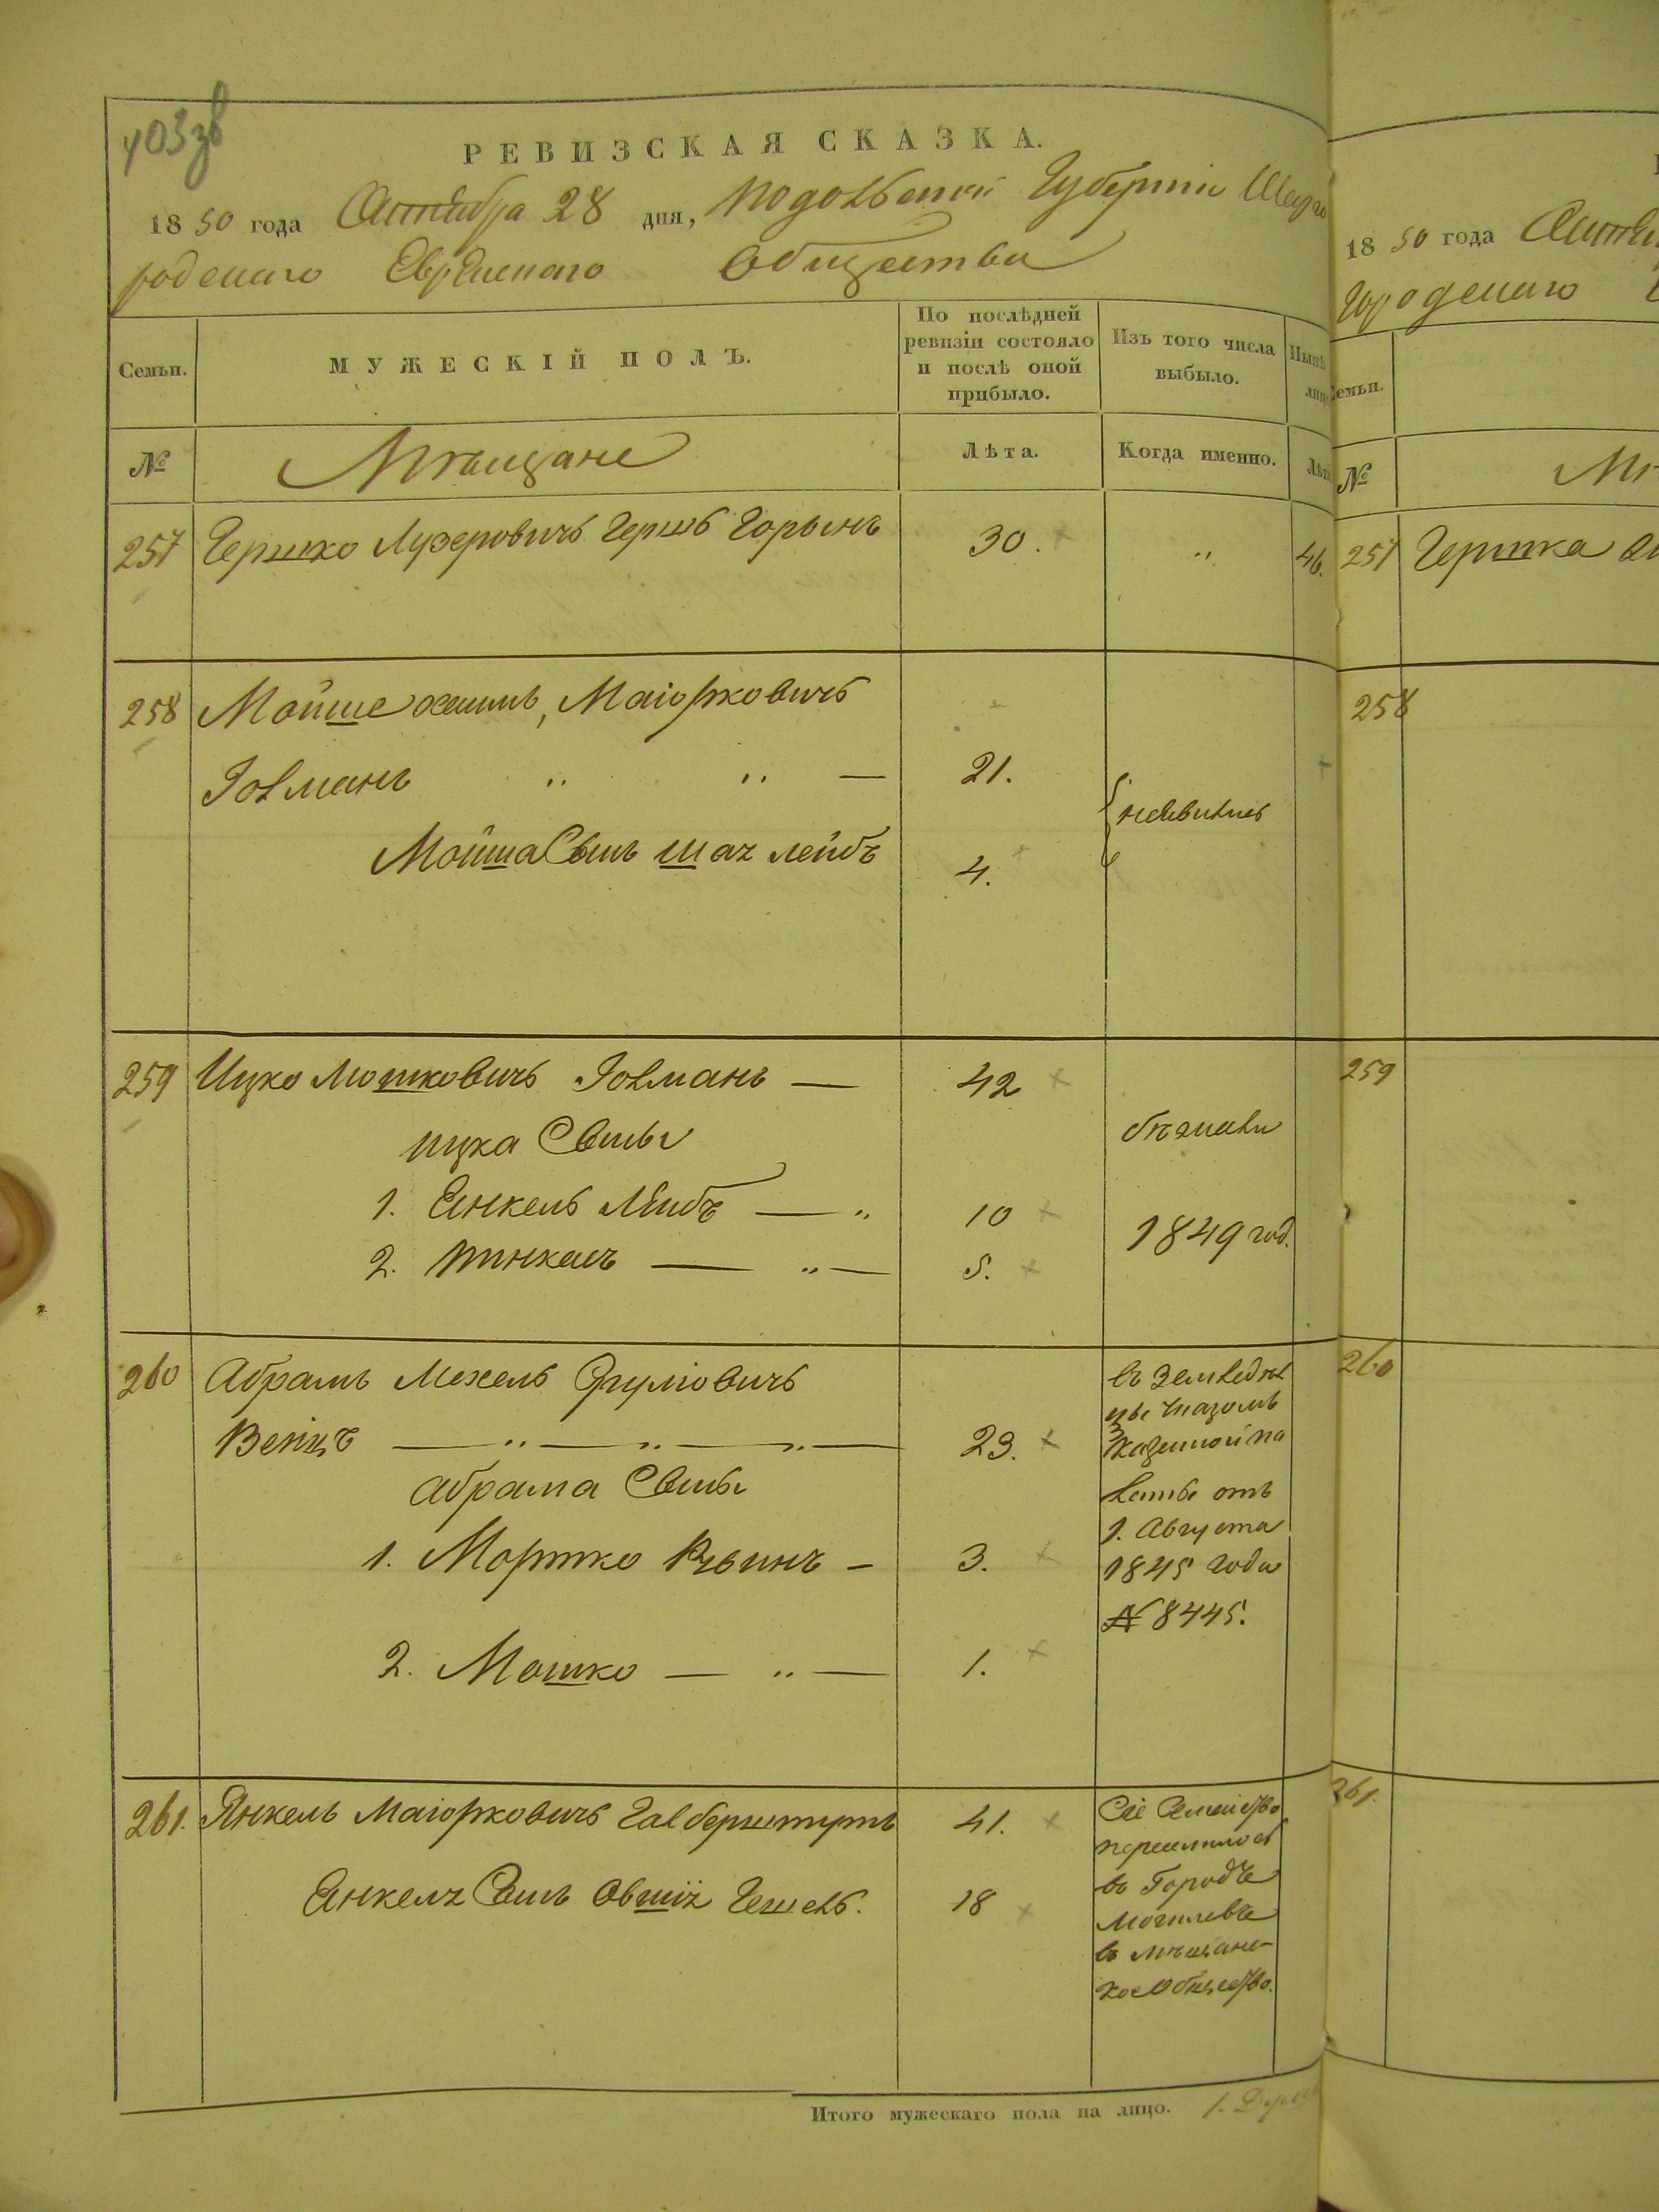 403 зв
РЕВИЗСКАЯ СКАЗКА.
1850 года Октября 28 дня, Подольской Губернии Шарго
родскаго Еврейскаго Общества
Семьи.
МУЖЕСКІЙ ПОЛЪ.
По послѣдней ревизіи состояло и послѣ оной прибыло.
Изъ того числа выбыло.
Нынѣ
№
Мѣщане
Лѣта.
Когда именно.
Лѣт
257 Гершко Лузеровичъ Гершъ Горынъ 30. " 46.
258 Мойше хаимъ, Маіорковичъ
Голманъ " " — 21.
неявились
Мойша Сынъ шаг лейбъ 4.
259 Ицко Мошковичъ Голманъ — 42
ицка Сыны
бѣжали
1. Енкель Лейбъ — " 10
1849 год.
2. Пинкасъ — " — 5.
260 Абрамъ Мехель Сруліовичъ
Венцъ — " — " — " — 23.
въ Земледѣл
цы Указомъ
Казенной па
латы отъ
1. Августа
1845 года
№ 8445.
абрама Сыны
1. Мортко Рувинъ — 3.
2. Мошко — " — 1.
261. Янкель Маіорковичъ Галберштутъ 41.
Енкеля Сынъ Овшія Гешель. 18
Сіе Семейство
переселилось
въ Городъ
Могилевъ
въ мѣщанс
кое Общество.
Итого мужескаго пола на лицо. 1.
18 50 года
Городскаго
Семьи.
№
257 Гершка
258
259
260
261.